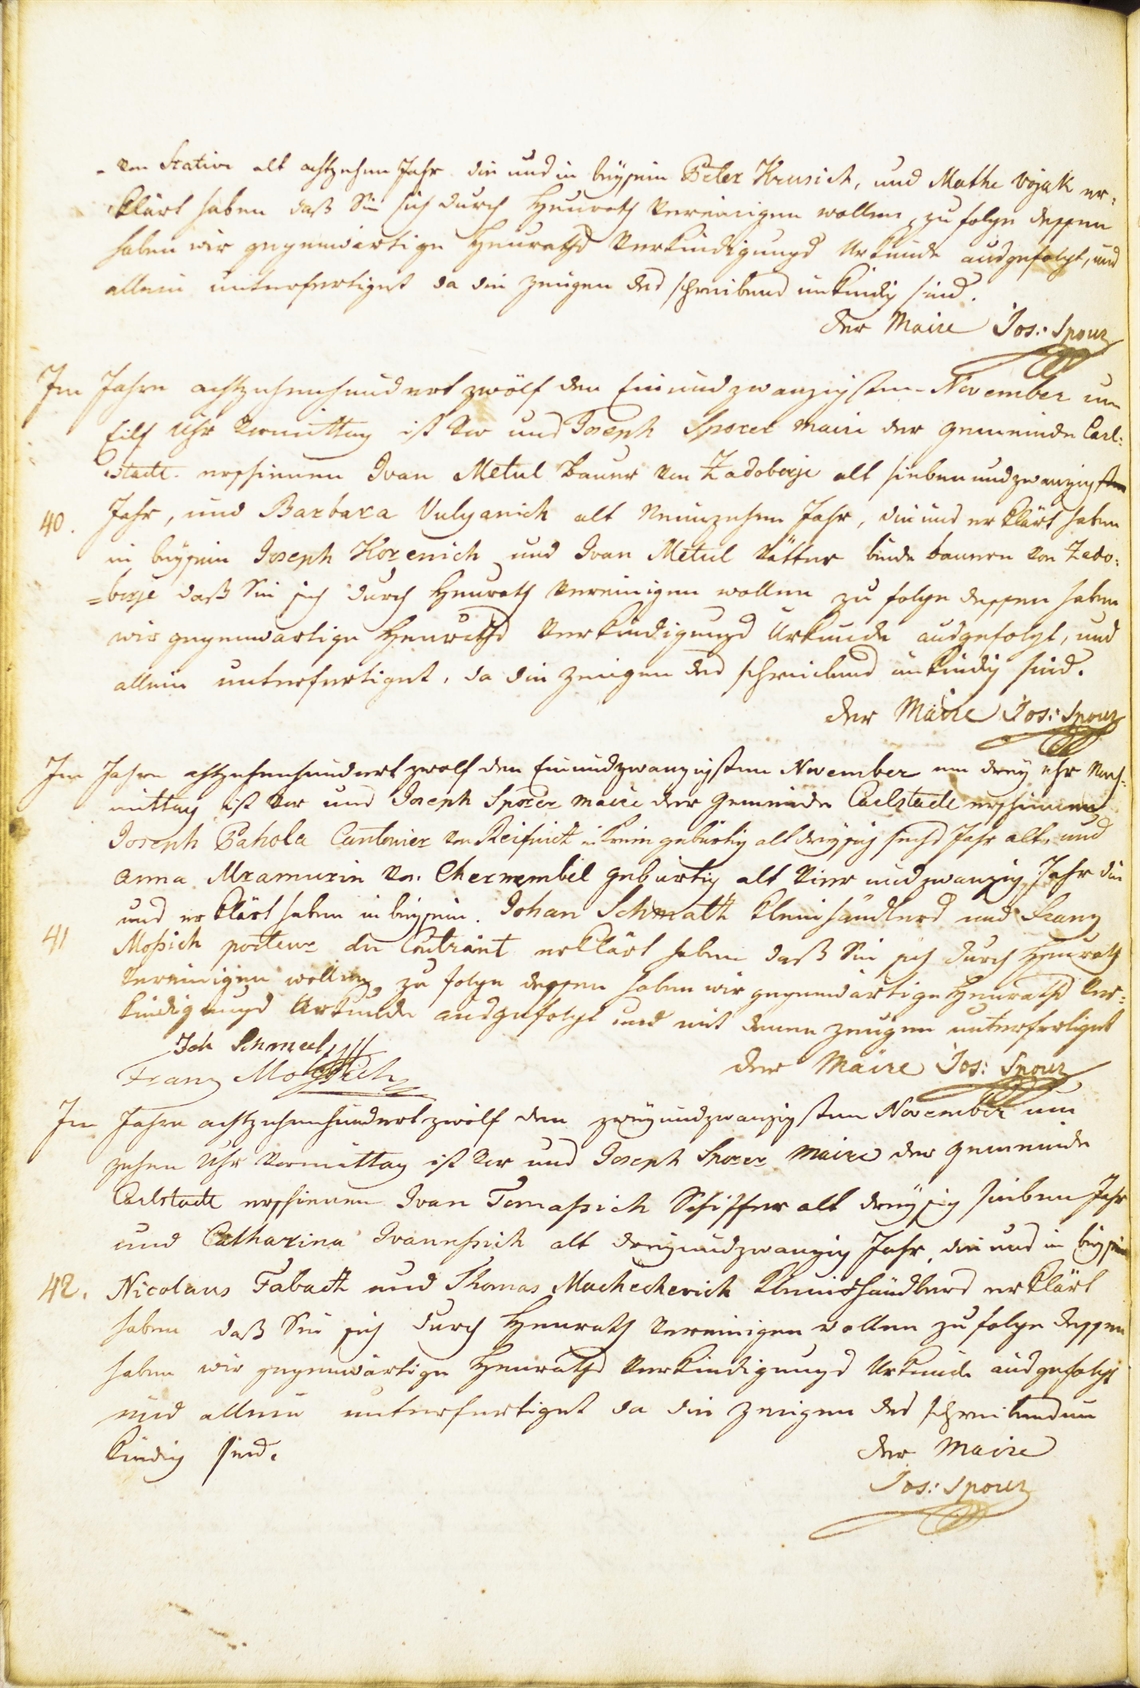 - von Stative alt achtzehen Jahr die uns in beysein Peter Krusich, und Mathe Vojak er-
klärt haben daß Sie sich durch Heurath Vereinigen wollen, zu folge dessen
haben wir gegenwärtige Heuraths Verkündigungs Urkunde ausgefolgt, und
allein unterfertiget da die Zeugen des schreibens unkündig sind.
der Maire Jos: Sporer
Im Jahre achtzehenhundert zwölf den Einundzwanzigsten November um
Eilf Uhr Vormittag ist Vor uns Joseph Sporer Maire der Gemeinde Carl-
stadt erschienen Ivan Metul Bauer von Zadoborje alt siebenundzwanzigsten
40. Jahr, und Barbara Vulyanich alt Neunzehen Jahr, die uns erklärt haben
in beysein Joseph Korenich und Ivan Metul Vätter beide bauern von Zado-
=borje daß Sie sich durch Heurath Vereinigen wollen zu folge dessen haben
wir gegenwärtige Heuraths Verkündigungs Urkunde ausgefolgt, und
allein unterfertiget, da die Zeugen des schreibens unkündig sind.
der Maire Jos: Sporer
Im Jahre achtzehenhundert zwölf den Einundzwanzigsten November um drey Uhr Nach-
mittag ist Vor uns Joseph Sporer Maire der Gemeinde Carlstadt erschienen
Joseph Pahola Cantonier von Reifnitz in Krain gebürtig alt dreysig sechs Jahr alt, und
Anna Mramurin von Chernembel gebürtig alt Vier und zwanzig Jahr die
uns erklärt haben in beysein Johan Schmath Kleinhändlers und Franz
41 Moßich porteur de Contraint erklärt haben daß Sie sich durch Heurath
Vereinigen wollen, zu folge dessen haben wir gegenwärtige Heuraths Ver-
kündigungs Urkunde ausgefolgt und mit denen Zeugen unterfertiget
Joh Schmeel
der Maire Jos: Sporer
Franz Moßich
Im Jahre achtzehenhundert zwölf den zweyundzwanzigsten November um
zehen Uhr Vormittag ist Vor uns Joseph Sporer Maire der Gemeinde
Carlstadt erschienen Ivan Tomaßich Schiffer alt dreysig sieben Jahr
und Catharina Ivaneßich alt dreyundzwanzig Jahr, die uns in beysein
42. Nicolaus Fabatt und Thomas Machechevich Kleinhändlers erklärt
haben daß Sie sich durch Heurath Vereinigen wollen zu folge dessen
haben wir gegenwärtige Heuraths Verkündigungs Urkunde ausgefolgt
und allein unterfertiget da die Zeugen des schreibens un
kündig sind.
der Maire
Jos: Sporer